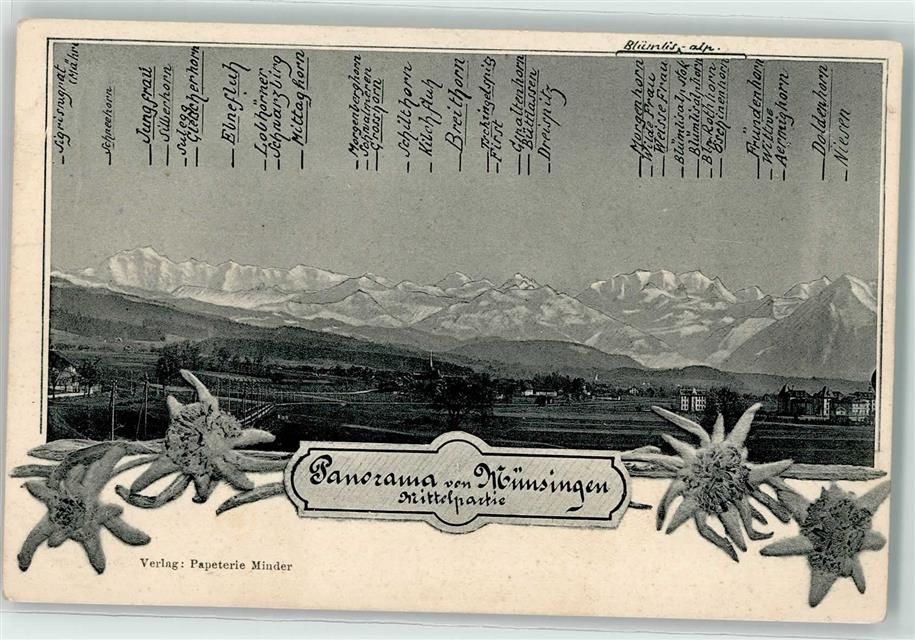 Blümlis-alp.
Sigriswgrat
Schneehorn
Jungfrau
Silberhorn
Suleg
Gletscherhorn
Ebnefluh
Lobhörner
Schwarzbirg
Mittaghorn
Morgenberghorn
Schwalmeren
Grosshorn
Schilthorn
Kilchfluh
Breithorn
Tschingelgrat
First
Gspaltenhorn
Büttlassen
Dreispitz
Morgenhorn
Wilde Frau
Weisse Frau
Blümlisalp
Blümlisalphorn
Rothhorn
Oeschinenhorn
Fründenhorn
Wittwe
Aermighorn
Doldenhorn
Niesen
Panorama von Münsingen
Mittelpartie
Verlag: Papeterie Minder